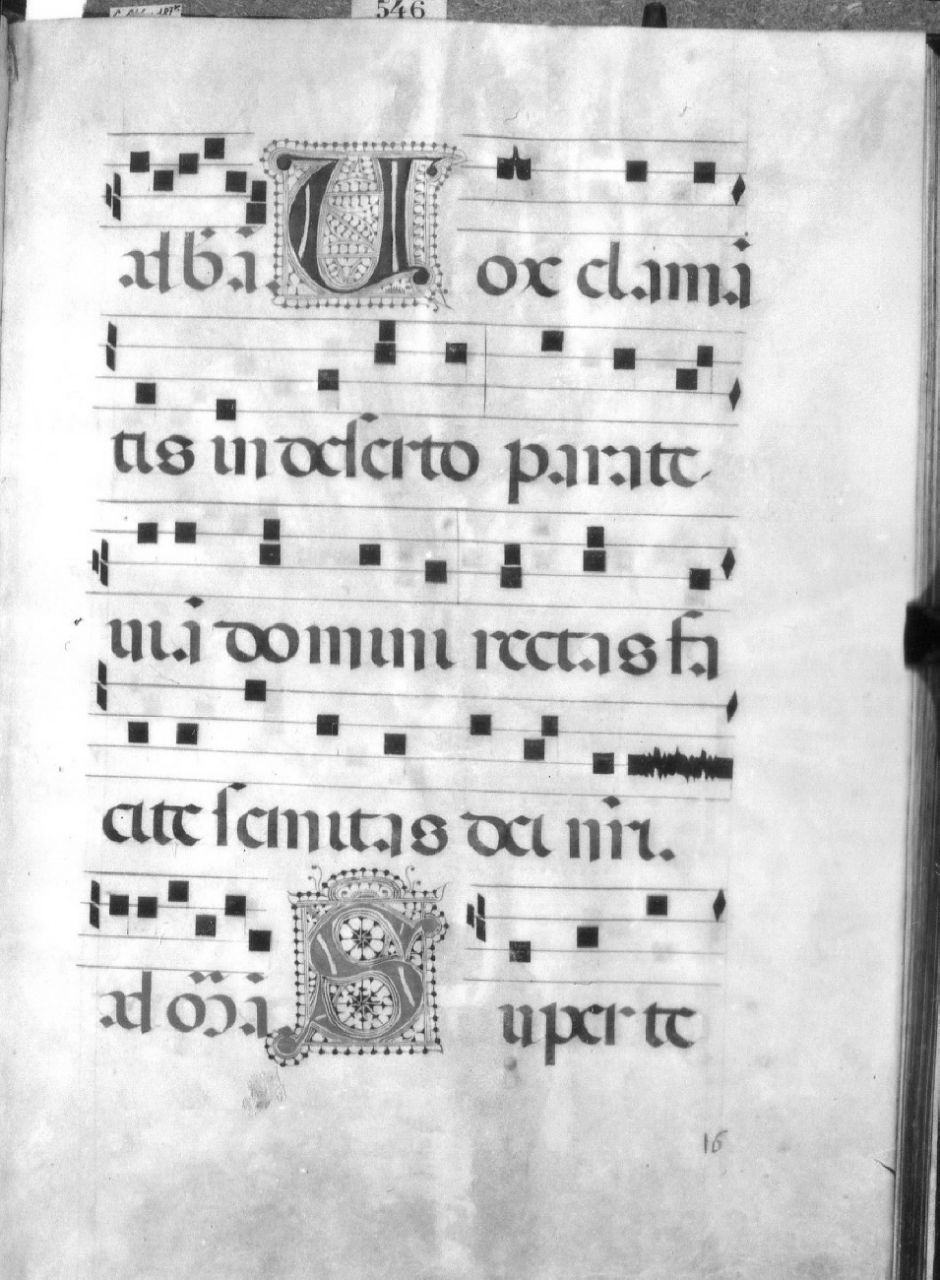 546
ad b̄ā. Vox clamā
tis in deserto parate
uiā domini rectas fa
cite semitas dei nr̄i.
ad or̄ā. Super te
16